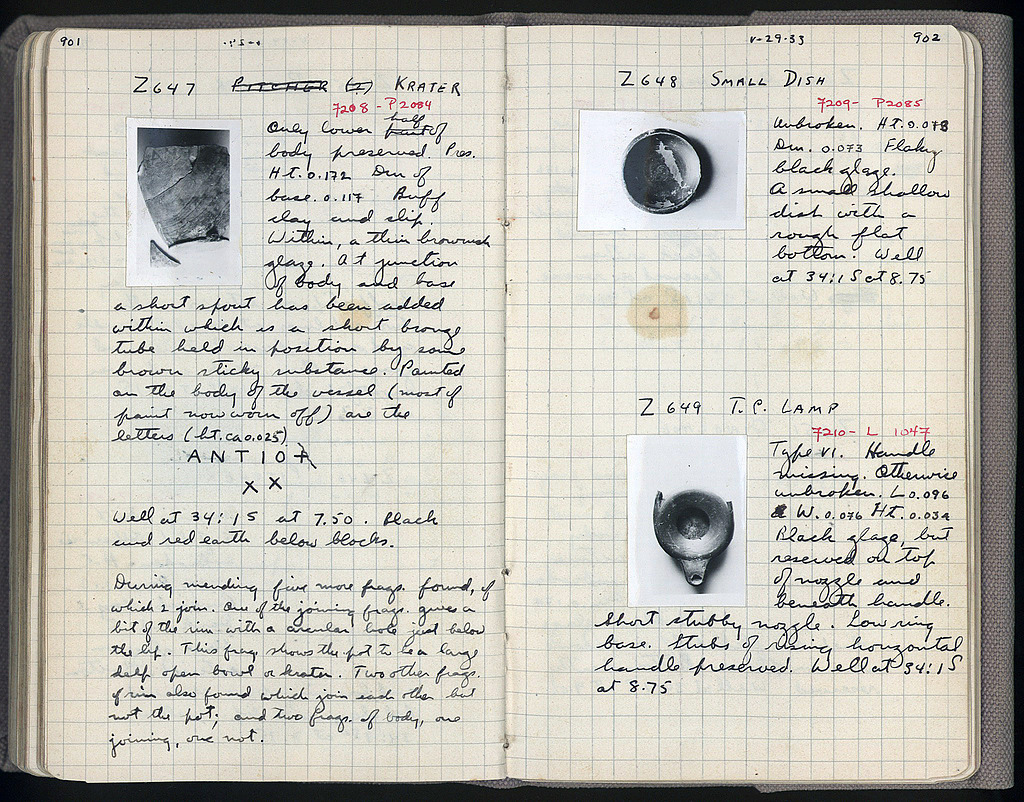 901
Z647 PITCHER (?) KRATER
7208 - P2084
half
Only lower part of
body preserved. Pres.
Ht. 0.172 Dm of
base. 0.117 Buff
clay and slip.
Within, a thin brownish
glaze. At junction
of body and base
a short spout has been added
within which is a short bronze
tube held in position by some
brown sticky substance. Painted
on the body of the vessel (most of
paint now worn off) are the
letters (ht. ca 0.025)
ANTIO
X X
Well at 34:15 at 7.50. Black
and red earth below blocks.
During mending five more frags. found, of
which 2 join. One of the joining frags. gives a
bit of the rim with a circular hole just below
the lip. This frag. shows the pot to be a large
deep open bowl or krater. Two other frags.
of rim also found which join each other but
not the pot; and two frags. of body, one
joining, one not.
V-29-33
902
Z648 SMALL DISH
7209- P2085
Unbroken. Ht. 0.
Dm. 0.073 Flaky
black glaze.
A small shallow
dish with a
rough flat
bottom. Well
at 34:15 at 8.75
Z 649 T.C. LAMP
7210- L 1047
Type VI. Handle
missing. Otherwise
unbroken. L 0.096
W. 0.076 Ht. 0.
Black glaze, but
reserved on top
of nozzle and
beneath handle.
Short stubby nozzle. Low ring
base. Stubs of rising horizontal
handle preserved. Well at 34:15
at 8.75